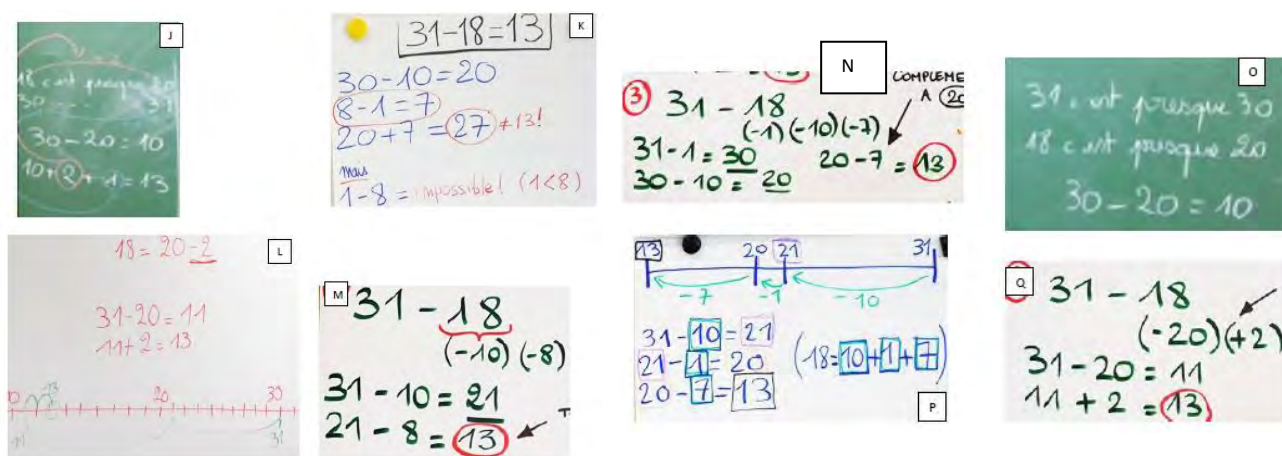 J
18 c'est presque 20
30 - 20 = 10
10 + 2 + 1 = 13
K
31 - 18 = 13
30 - 10 = 20
8 - 1 = 7
20 + 7 = 27 ≠ 13!
mais
1 - 8 = impossible! (1 < 8)
N
COMPLEME
A 20
3 31 - 18
(-1) (-10) (-7)
31 - 1 = 30
30 - 10 = 20
20 - 7 = 13
O
31 c'est presque 30
18 c'est presque 20
30 - 20 = 10
L
18 = 20 - 2
31 - 20 = 11
11 + 2 = 13
10 13 20 30
11 31
M
31 - 18
(-10) (-8)
31 - 10 = 21
21 - 8 = 13
13 20 21 31
-7 -1 -10
31 - 10 = 21
21 - 1 = 20
20 - 7 = 13
(18 = 10 + 1 + 7)
P
Q
31 - 18
(-20) (+2)
31 - 20 = 11
11 + 2 = 13